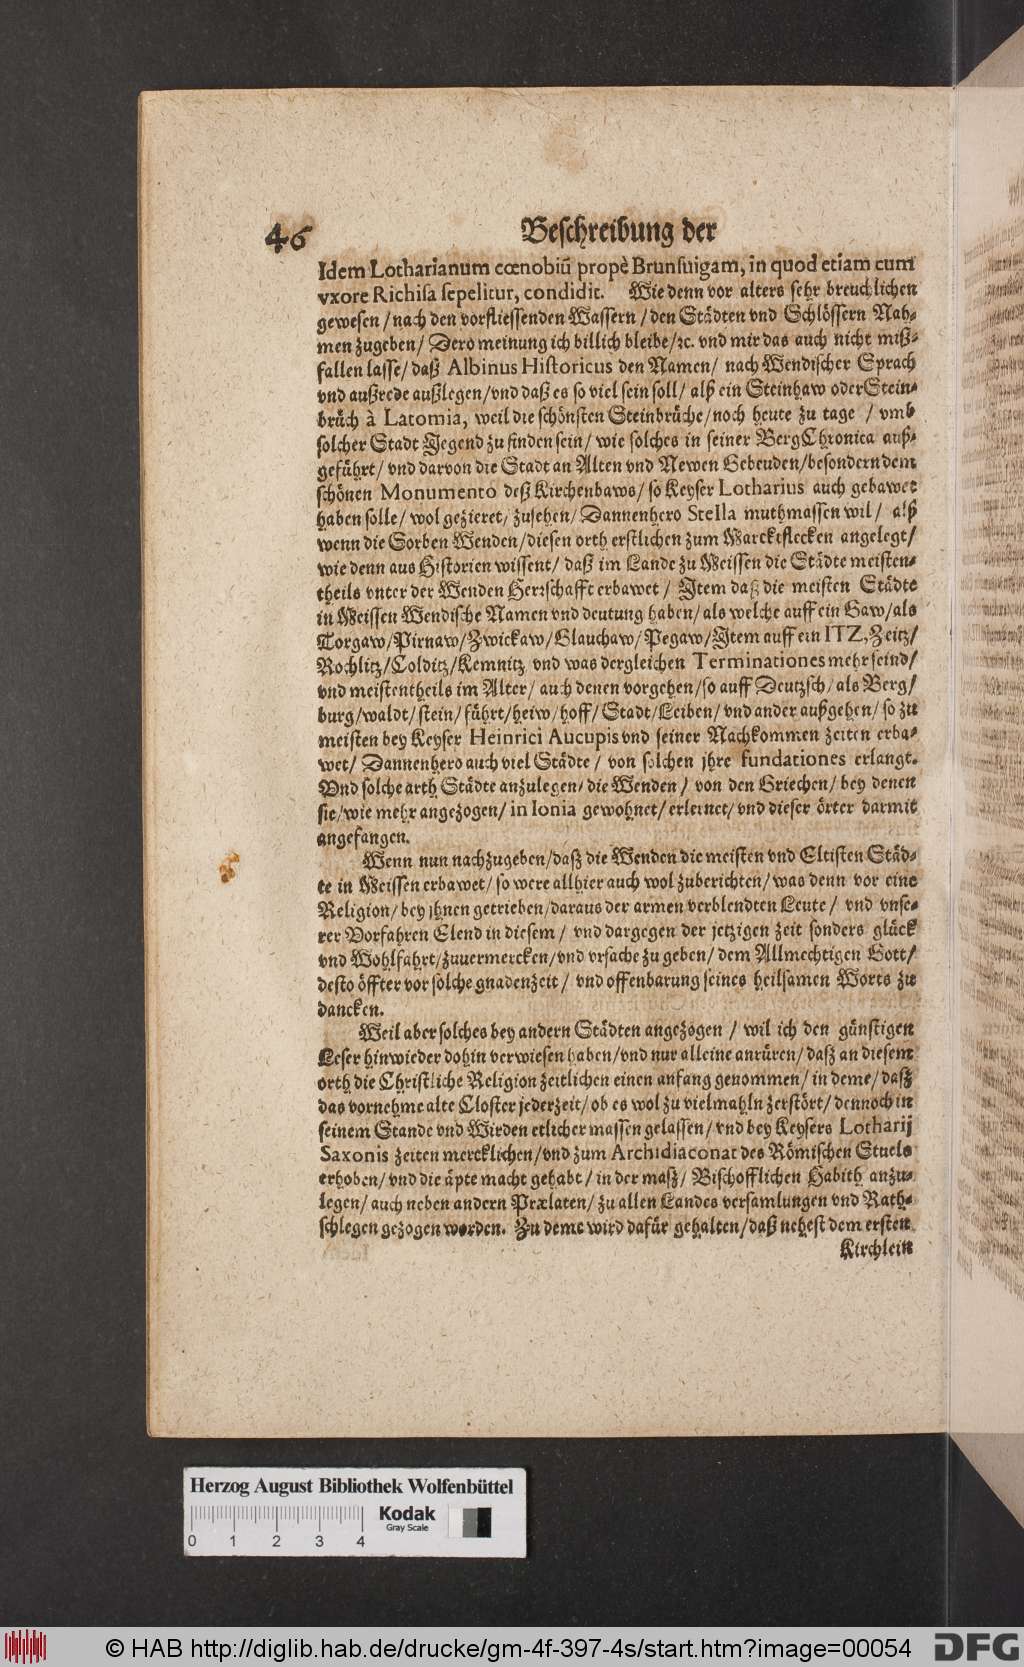 46 Beschreibung der
Idem Lotharianum cœnobiū propè Brunsuigam, in quod etiam cum
vxore Richisa sepelitur, condidit. Wie denn vor alters sehr breuchlichen
gewesen / nach den vorfliessenden Wassern / den Städten vnd Schlössern Nah-
men zugeben / Dero meinung ich billich bleibe / ꝛc. vnd mir das auch nicht miß-
fallen lasse / daß Albinus Historicus den Namen / nach Wendischer Sprach
vnd außrede außlegen / vnd daß es so viel sein soll / alß ein Steinhaw oder Stein-
brüch à Latomia, weil die schönsten Steinbrüche / noch heute zu tage / vmb
solcher Stadt Jegend zu finden sein / wie solches in seiner BergChronica auß-
geführt / vnd darvon die Stadt an Alten vnd Newen Gebeuden / besondern dem
schönen Monumento deß Kirchenbaws / so Keyser Lotharius auch gebawet
haben solle / wol gezieret / zusehen / Dannenhero Stella muthmassen wil / alß
wenn die Sorben Wenden / diesen orth erstlichen zum Marckflecken angelegt /
wie denn aus Historien wissent / daß im Lande zu Meissen die Städte meisten-
theils vnter der Wenden Herrschafft erbawet / Item daß die meisten Städte
in Meissen Wendische Namen vnd deutung haben / als welche auff ein Gaw / als
Torgaw / Pirnaw / Zwickaw / Glauchaw / Pegaw / Item auff ein ITZ, Zeitz /
Rochlitz / Colditz / Kemnitz, vnd was dergleichen Terminationes mehr seind /
vnd meistentheils im Alter / auch denen vorgehen / so auff Deutzsch / als Berg /
burg / waldt / stein / führt / heiw / hoff / Stadt / Leiben / vnd ander außgehen / so zu
meisten bey Keyser Heinrici Aucupis vnd seiner Nachkommen zeiten erba-
wet / Dannenhero auch viel Städte / von solchen jhre fundationes erlangt.
Vnd solche arth Städte anzulegen / die Wenden / von den Griechen / bey denen
sie / wie mehr angezogen / in Ionia gewohnet / erlernet / vnd dieser örter darmit
angefangen.
Wenn nun nachzugeben / daß die Wenden die meisten vnd Eltisten Städ-
te in Meissen erbawet / so were allhier auch wol zuberichten / was denn vor eine
Religion / bey jhnen getrieben / daraus der armen verblendten Leute / vnd vnse-
rer Vorfahren Elend in diesem / vnd dargegen der jetzigen zeit sonders glück
vnd Wohlfahrt / zuvermercken / vnd vrsache zu geben / dem Allmechtigen Gott /
desto öffter vor solche gnadenzeit / vnd offenbarung seines heilsamen Worts zu
dancken.
Weil aber solches bey andern Städten angezogen / wil ich den günstigen
Leser hinwieder dohin verwiesen haben / vnd nur alleine anrüren / daß an diesem
orth die Christliche Religion zeitlichen einen anfang genommen / in deme / daß
das vornehme alte Closter jederzeit / ob es wol zu vielmahln zerstört / dennoch in
seinem Stande vnd Wirden etlicher massen gelassen / vnd bey Keysers Lotharij
Saxonis zeiten mercklichen / vnd zum Archidiaconat des Römischen Stuels
erhoben / vnd die äpte macht gehabt / in der maß / Bischofflichen Habith anzu-
legen / auch neben andern Prælaten / zu allen Landes versamlungen vnd Rath-
schlegen gezogen worden. Zu deme wird dafür gehalten / daß nehest dem ersten
Kirchlein
Herzog August Bibliothek Wolfenbüttel
Kodak
Gray Scale
0 1 2 3 4
© HAB http://diglib.hab.de/drucke/gm-4f-397-4s/start.htm?image=00054 DFG